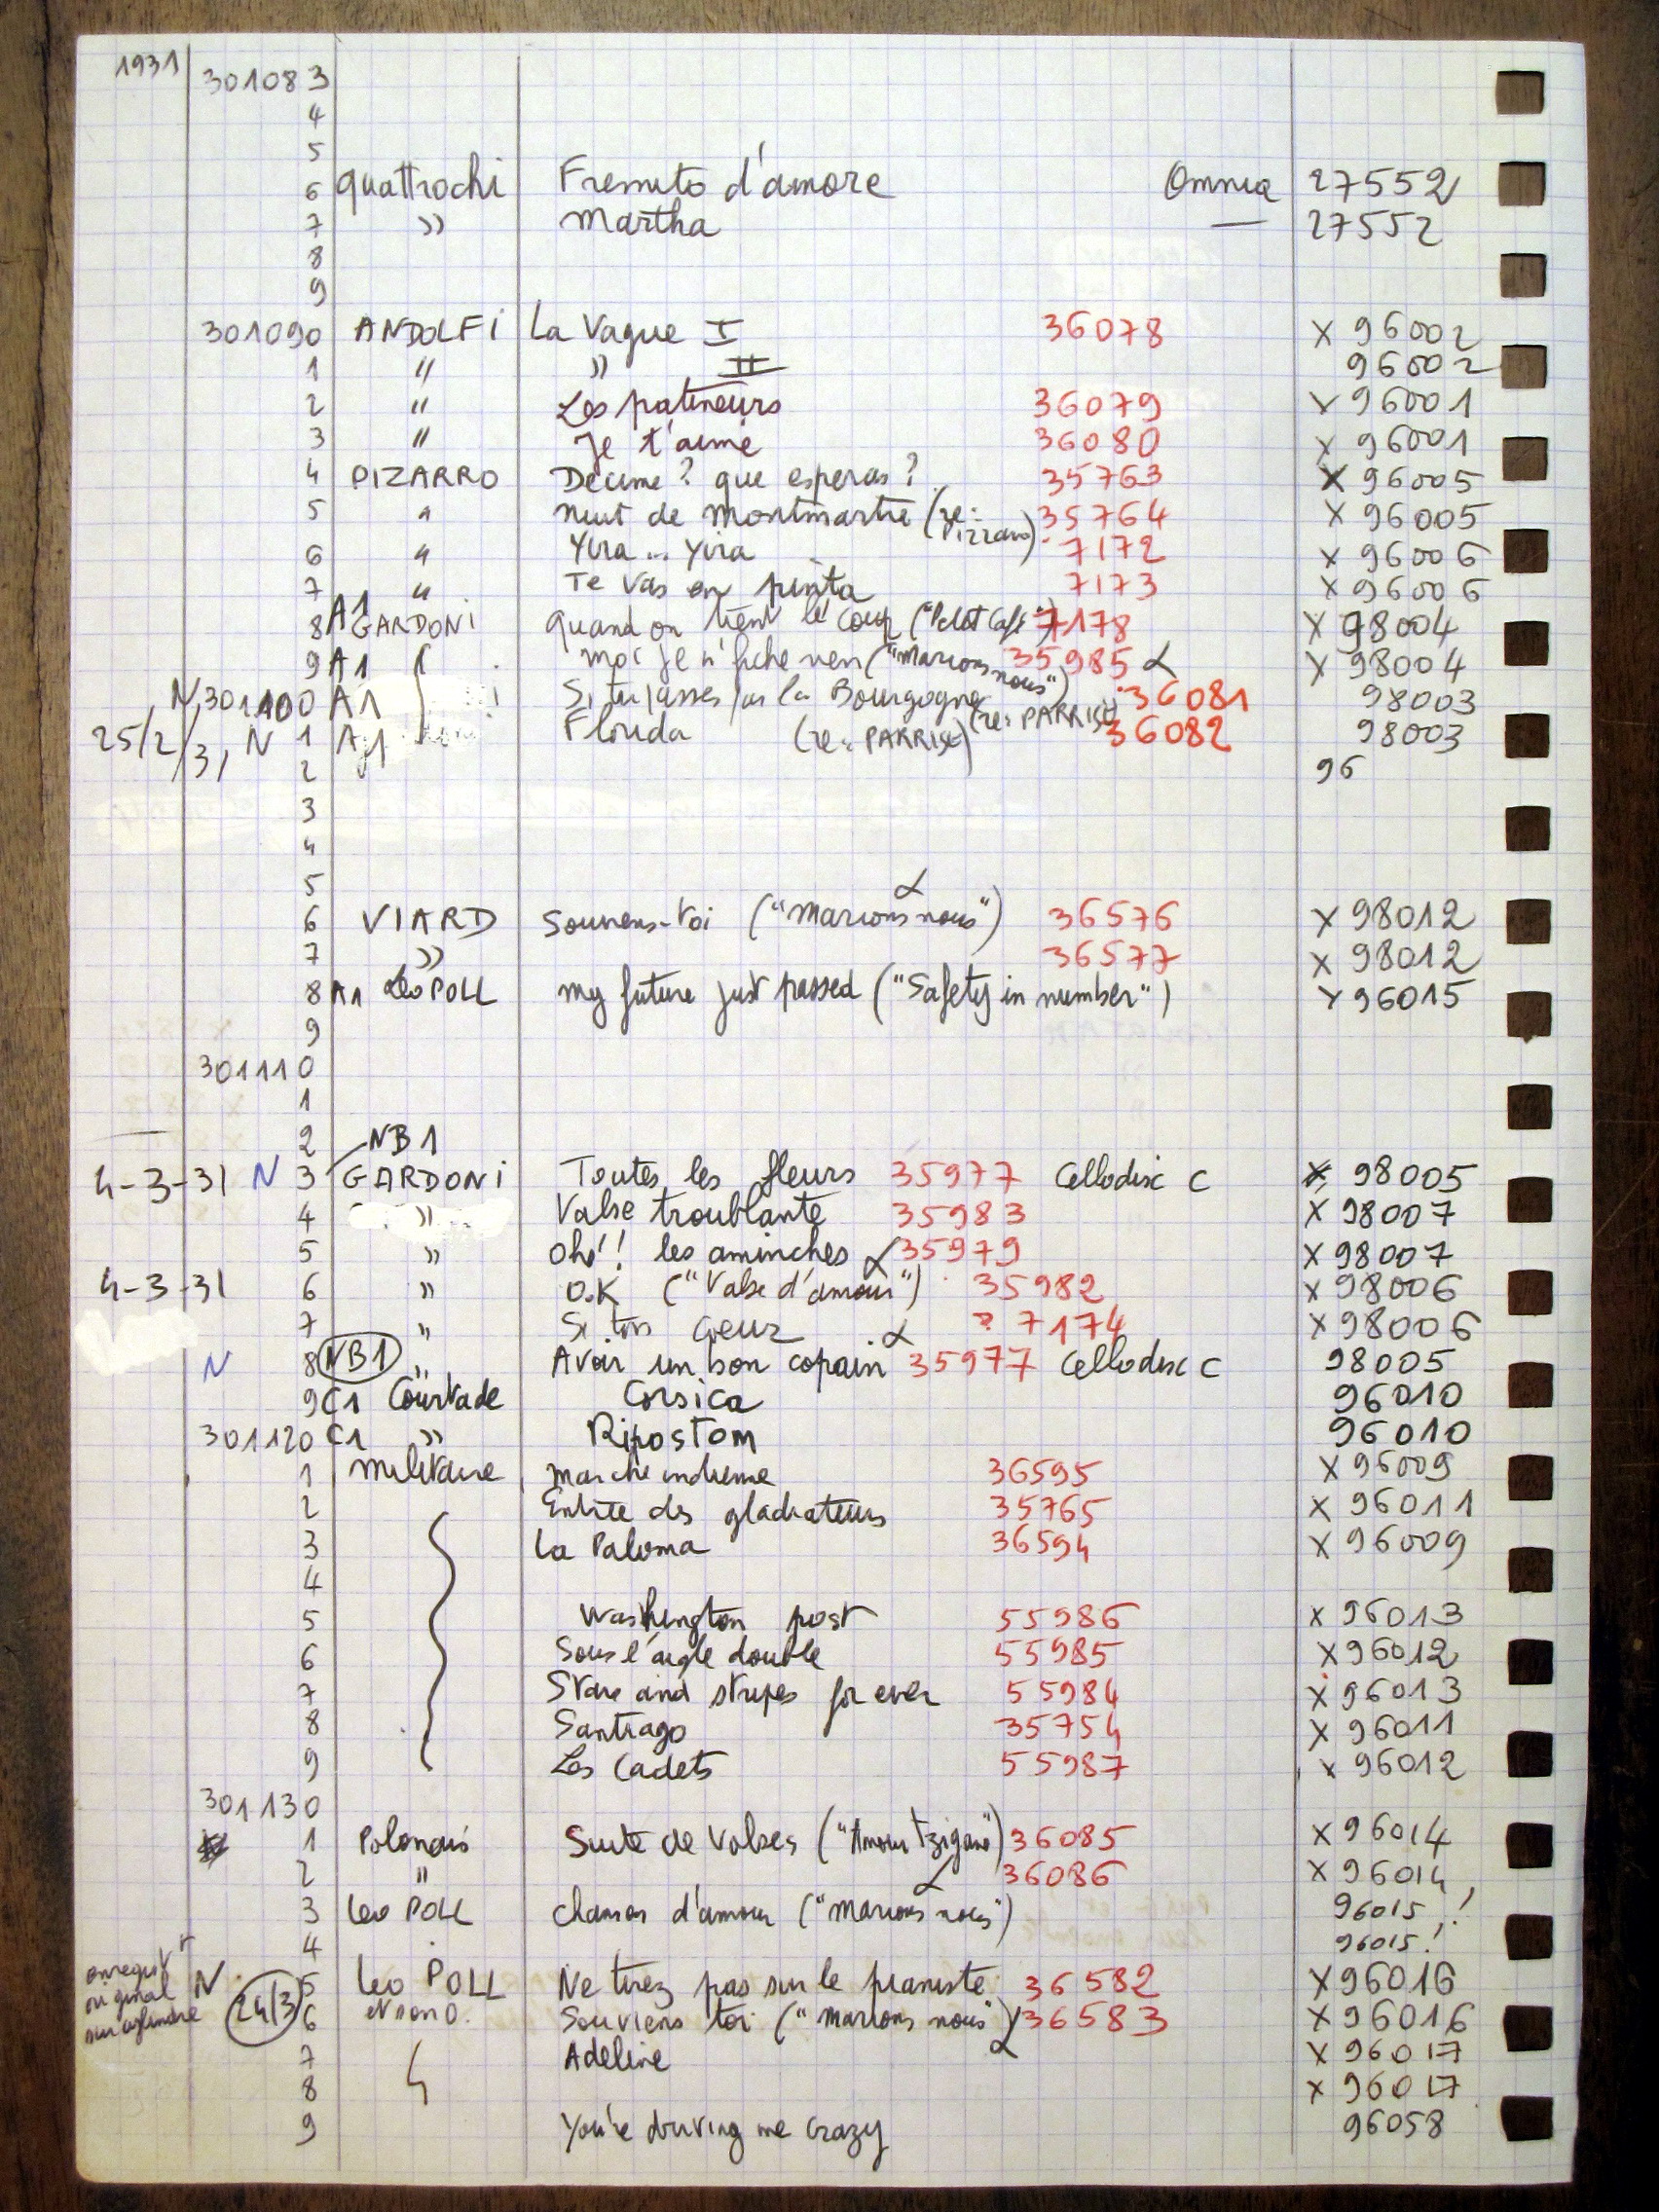 1931 301083
4
5
6 Quattrochi Fremito d'amore Omnia 27552
7 » Martha — 27552
8
9
301090 ANDOLFI La Vague I 36078 X 96002
1 " » II 96002
2 " Les patineurs 36079 X 96001
3 " Je t'aime 36080 X 96001
4 PIZARRO Decime? que esperas? 35763 X 96005
5 " nuit de Montmartre (re: Pizzaro) 35764 X 96005
6 " Yira... Yira 7172 X 96006
7 " Te vas en pinta 7173 X 96006
8 A1 GARDONI Quand on tient le coup ("Petit Café") 7178 X 98004
9 A1 moi je m'fiche rien ("Marions nous") 35985 α X 98004
N 301100 A1 Si tu passes par la Bourgogne (re: PARRISE) 36081 98003
25/2/31 N 1 A1 Florida (re: PARRISE) 36082 98003
2 96
3
4
5
6 VIARD Souviens-toi ("Marions nous") α 36576 X 98012
7 » 36577 X 98012
8 A1 Leo POLL my future just passed ("Safety in number") X 96015
9
301110
1
2 NB1
4-3-31 N 3 GARDONI Toutes les fleurs 35977 Cellodisc C X 98005
4 » Valse troublante 35983 X 98007
5 » Ohé!! les aminches α 35979 X 98007
4-3-31 6 » O.K ("Valse d'amour") 35982 X 98006
7 " Si ton coeur ? 7174 X 98006
N 8 NB1 " Avoir un bon copain α 35977 Cellodisc C 98005
9 C1 Courtade Corsica 96010
301120 C1 » Ripostom 96010
1 militaire marche indienne 36595 X 96009
2 Entrée des gladiateurs 35765 X 96011
3 La Paloma 36594 X 96009
4
5 Washington post 55986 X 96013
6 Sous l'aigle double 55985 X 96012
7 Stars and stripes for ever 55984 X 96013
8 Santiago 35754 X 96011
9 Les Cadets 55987 X 96012
301130
1 Polonais Suite de Valses ("Amour tzigane") 36085 X 96014
2 " 36086 X 96014
3 Leo POLL chanson d'amour ("Marions nous") α 96015!
4 96015!
enregistt original sur cylindre N 24/3 5 Leo POLL Ne tirez pas sur le pianiste 36582 X 96016
6 et son O. Souviens toi ("marions nous") α 36583 X 96016
7 Adeline X 96017
8 X 96017
9 You're driving me crazy 96058